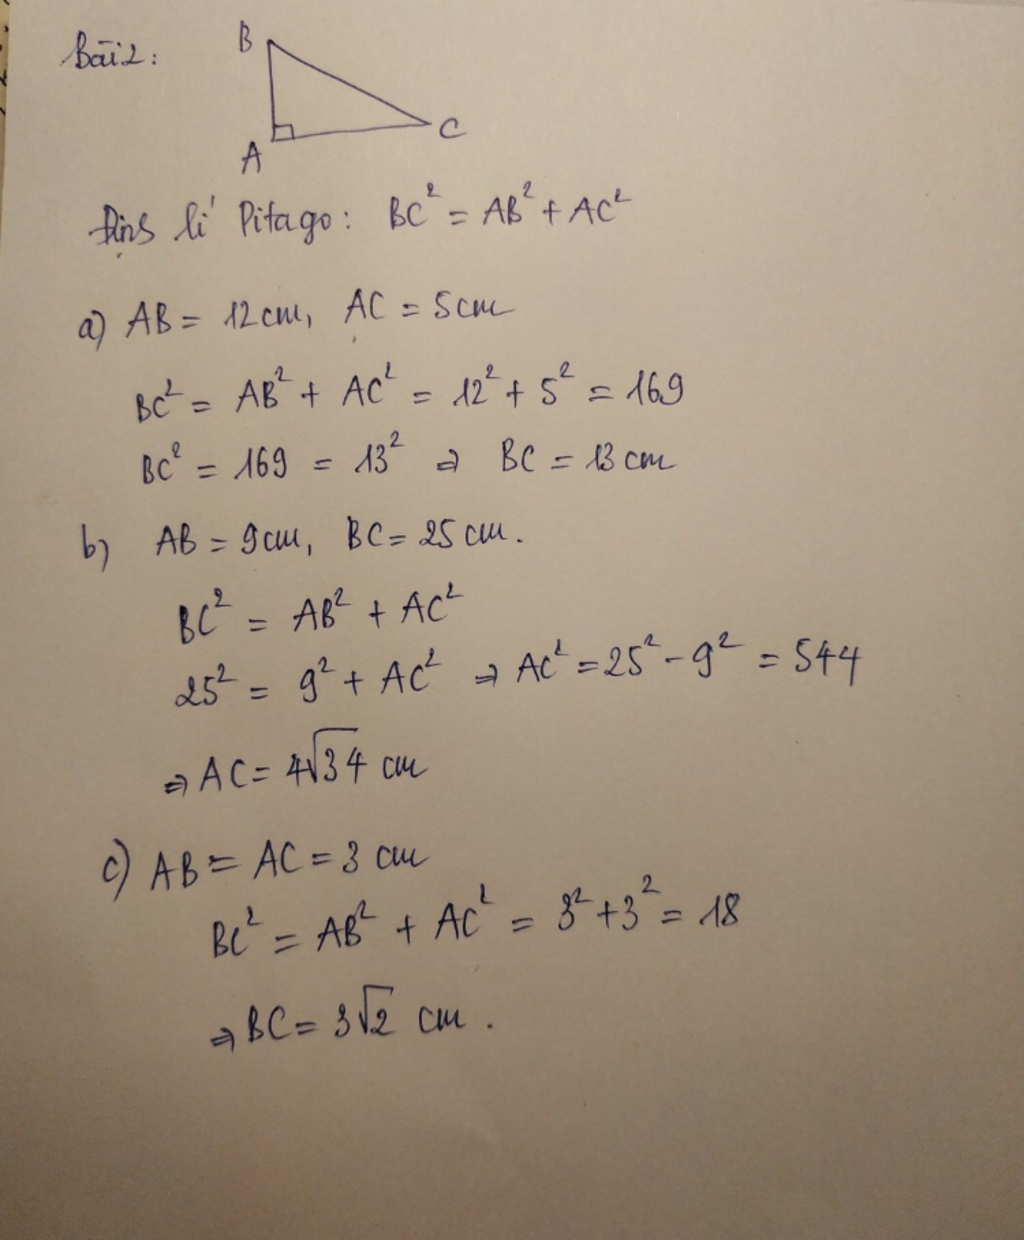 Bài 2:
B
A
C
Định lí Pitago: BC² = AB² + AC²
a) AB = 12cm, AC = 5cm
BC² = AB² + AC² = 12² + 5² = 169
BC² = 169 = 13² ⇒ BC = 13 cm
b) AB = 9cm, BC = 25 cm.
BC² = AB² + AC²
25² = 9² + AC² ⇒ AC² = 25² - 9² = 544
⇒ AC = 4√34 cm
c) AB = AC = 3 cm
BC² = AB² + AC² = 3² + 3² = 18
⇒ BC = 3√2 cm.